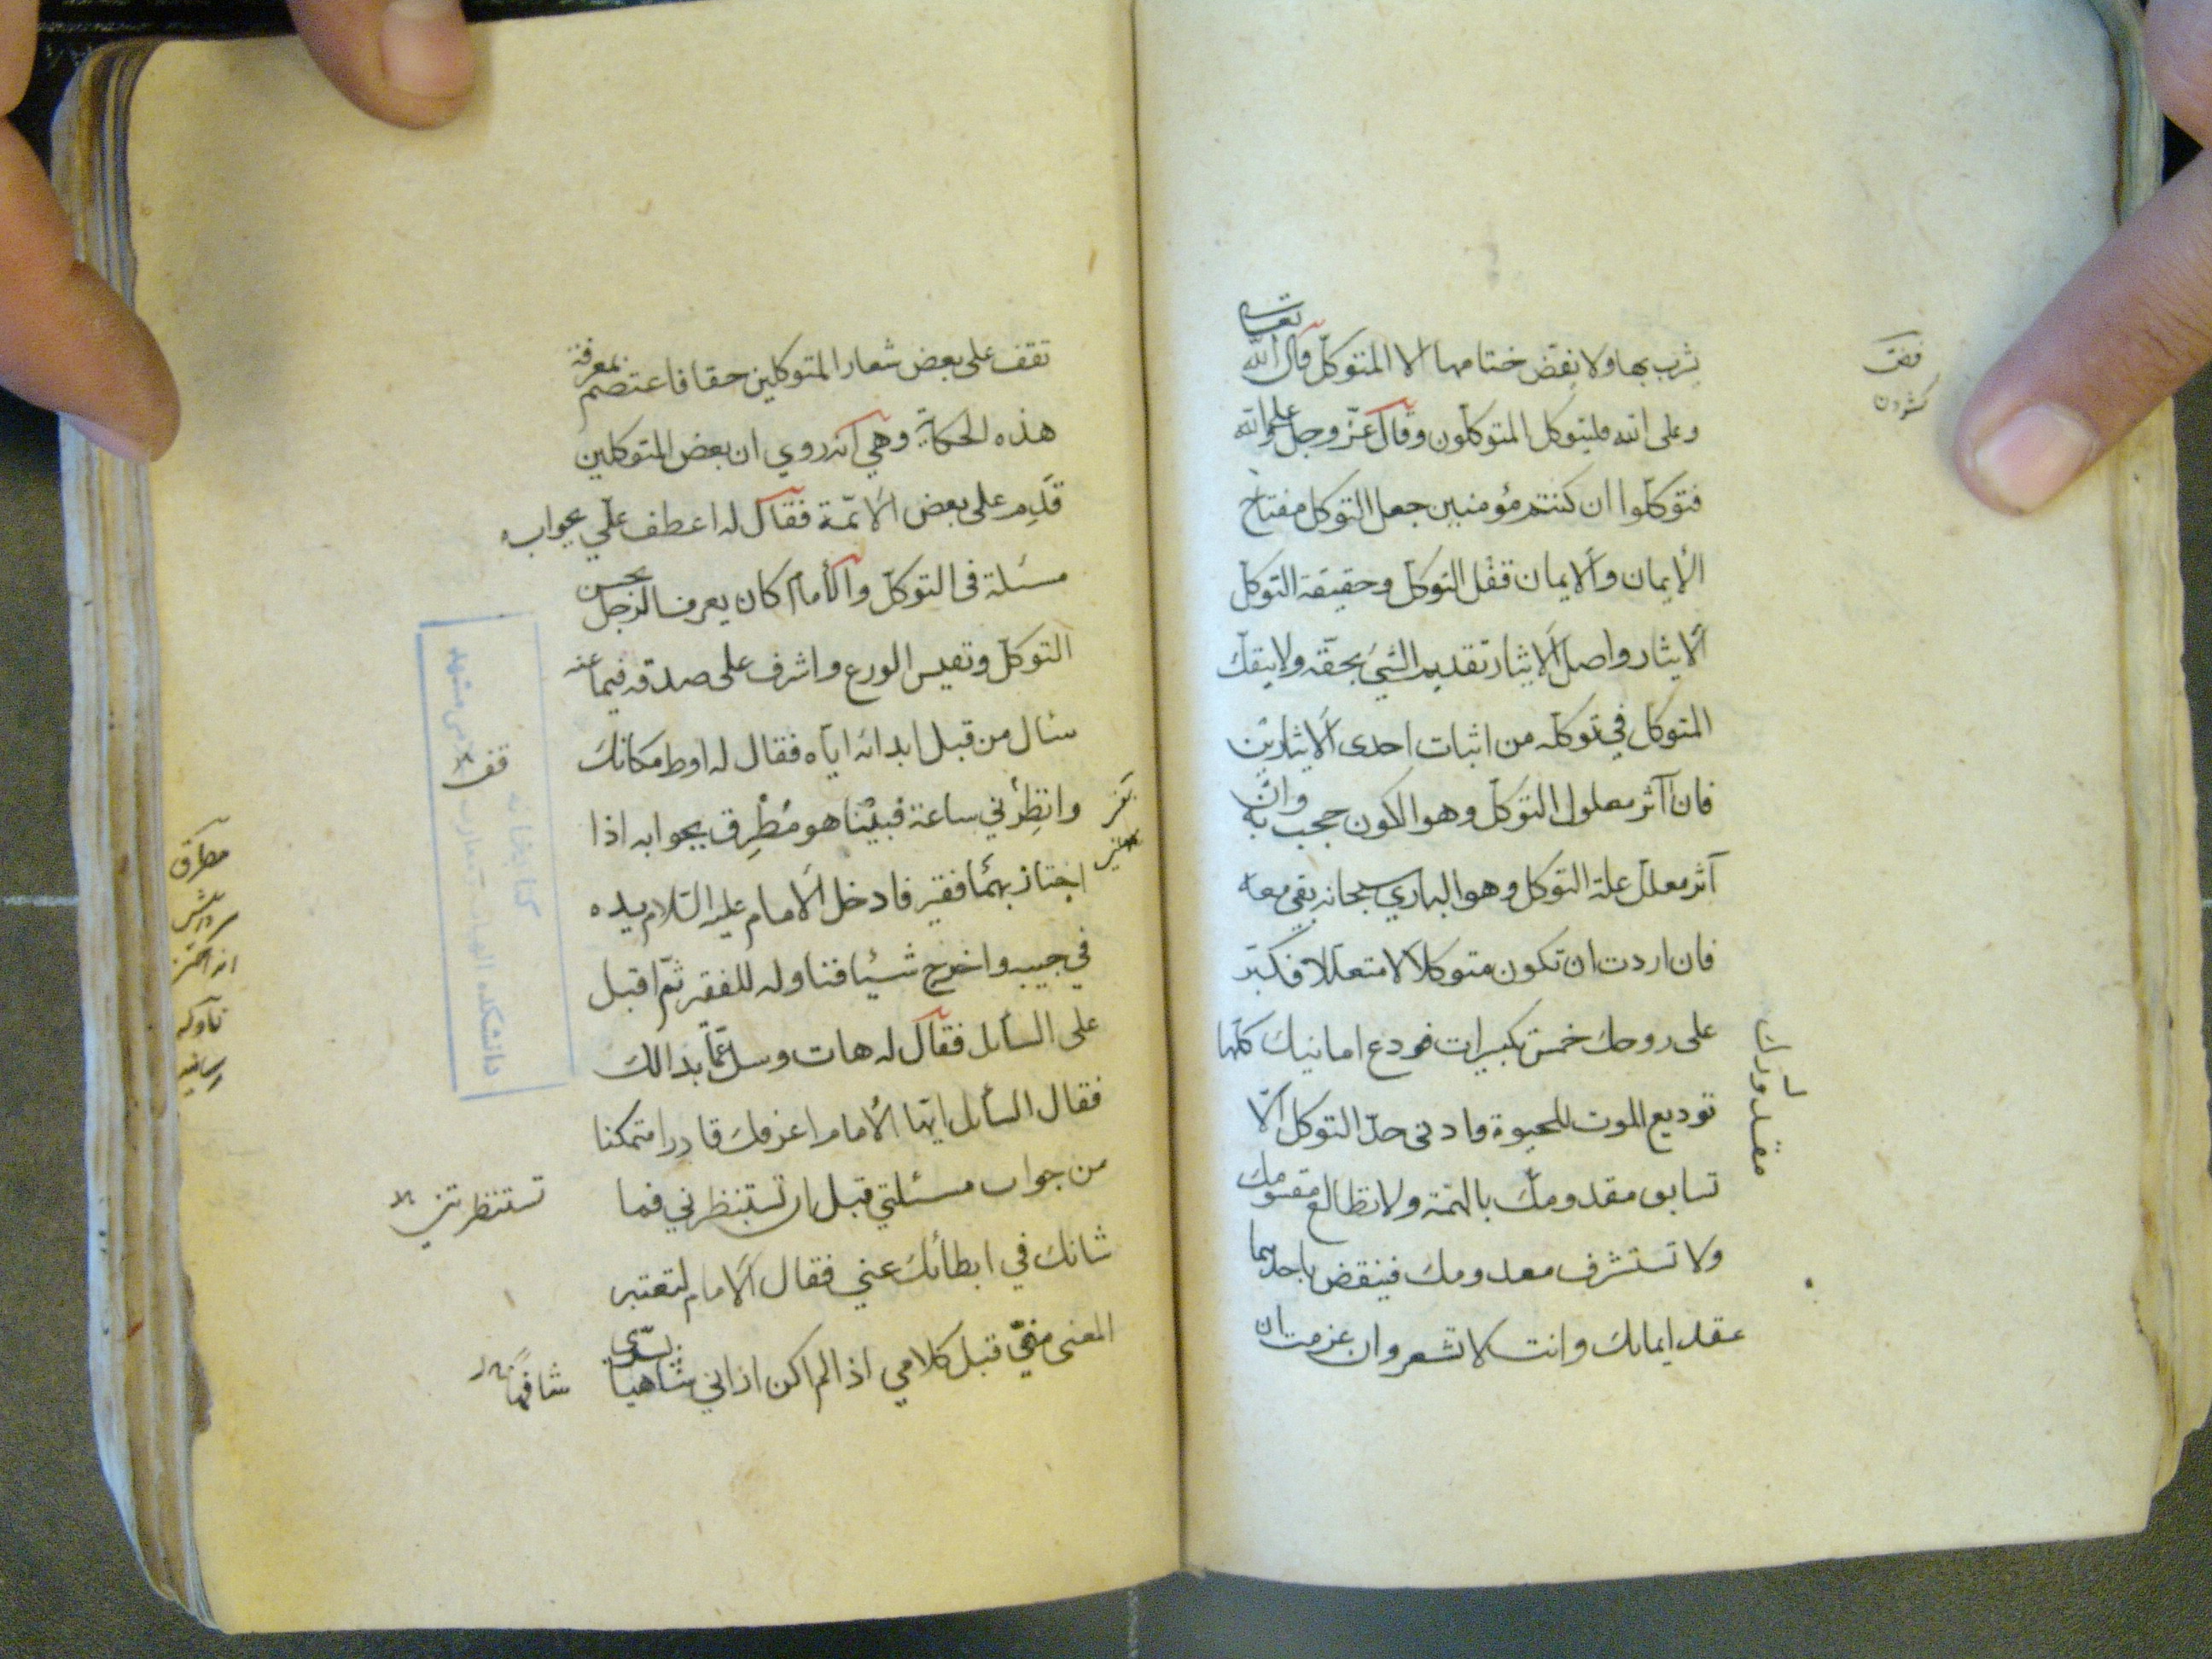 يشرب بها ولا يفض ختامها الا المتوكل قال الله تعالى
وعلى الله فليتوكل المتوكلون وقال عز وجل وعلى الله
فتوكلوا ان كنتم مؤمنين جعل التوكل مفتاح
الإيمان والايمان قفل التوكل وحقيقة التوكل
الايثار واصل الايثار تقديم الشيء بحقه ولا ينفك
المتوكل في توكله من اثبات احدى الايثارين
فان آثر معلول التوكل وهو الكون حجب به وان
آثر معلل علة التوكل وهو الباري سبحانه بقي معه
فان اردت ان تكون متوكلا لا متعللا فكبر
على روحك خمس تكبيرات فودع امانيك كلها
توديع الموت للحيوة وادنى حد التوكل الا
تسابق مقدومك بالهمة ولا تطالع مقسومك
ولا تستشرف معدومك فينقض باحديهما
عقد ايمانك وانت لا تشعر وان عزمت ان
فض
مقدورك
تقف على بعض شعار المتوكلين حقا فاعتصم بمعرفة
هذه الحكاية وهي انه روي ان بعض المتوكلين
قدم على بعض الائمة فقال له اعطف علي بجواب
مسئلة في التوكل والأمام كان يعرف الرجل بحسن
التوكل ونفيس الورع واشرف على صدقه فيما عنه
سئال من قبل ابدائه اياه فقال له اوط مكانك
وانظرني ساعة فبينا هو مطرق بجوابه اذا
اجتاز بهما فقير فادخل الامام عليه السلام يده
في جيبه واخرج شيئا فناوله للفقير ثم اقبل
على السائل فقال له هات وسل عما بدالك
فقال السائل ايها الأمام اعرفك قادرا متمكنا
من جواب مسئلتي قبل ان تستنظرني فما
شانك في ابطائك عني فقال الامام لتعتبر
المعنى مني قبل كلامي اذا لم اكن اراني شاهيا بسري
قف
مطرق
تستنظرتني